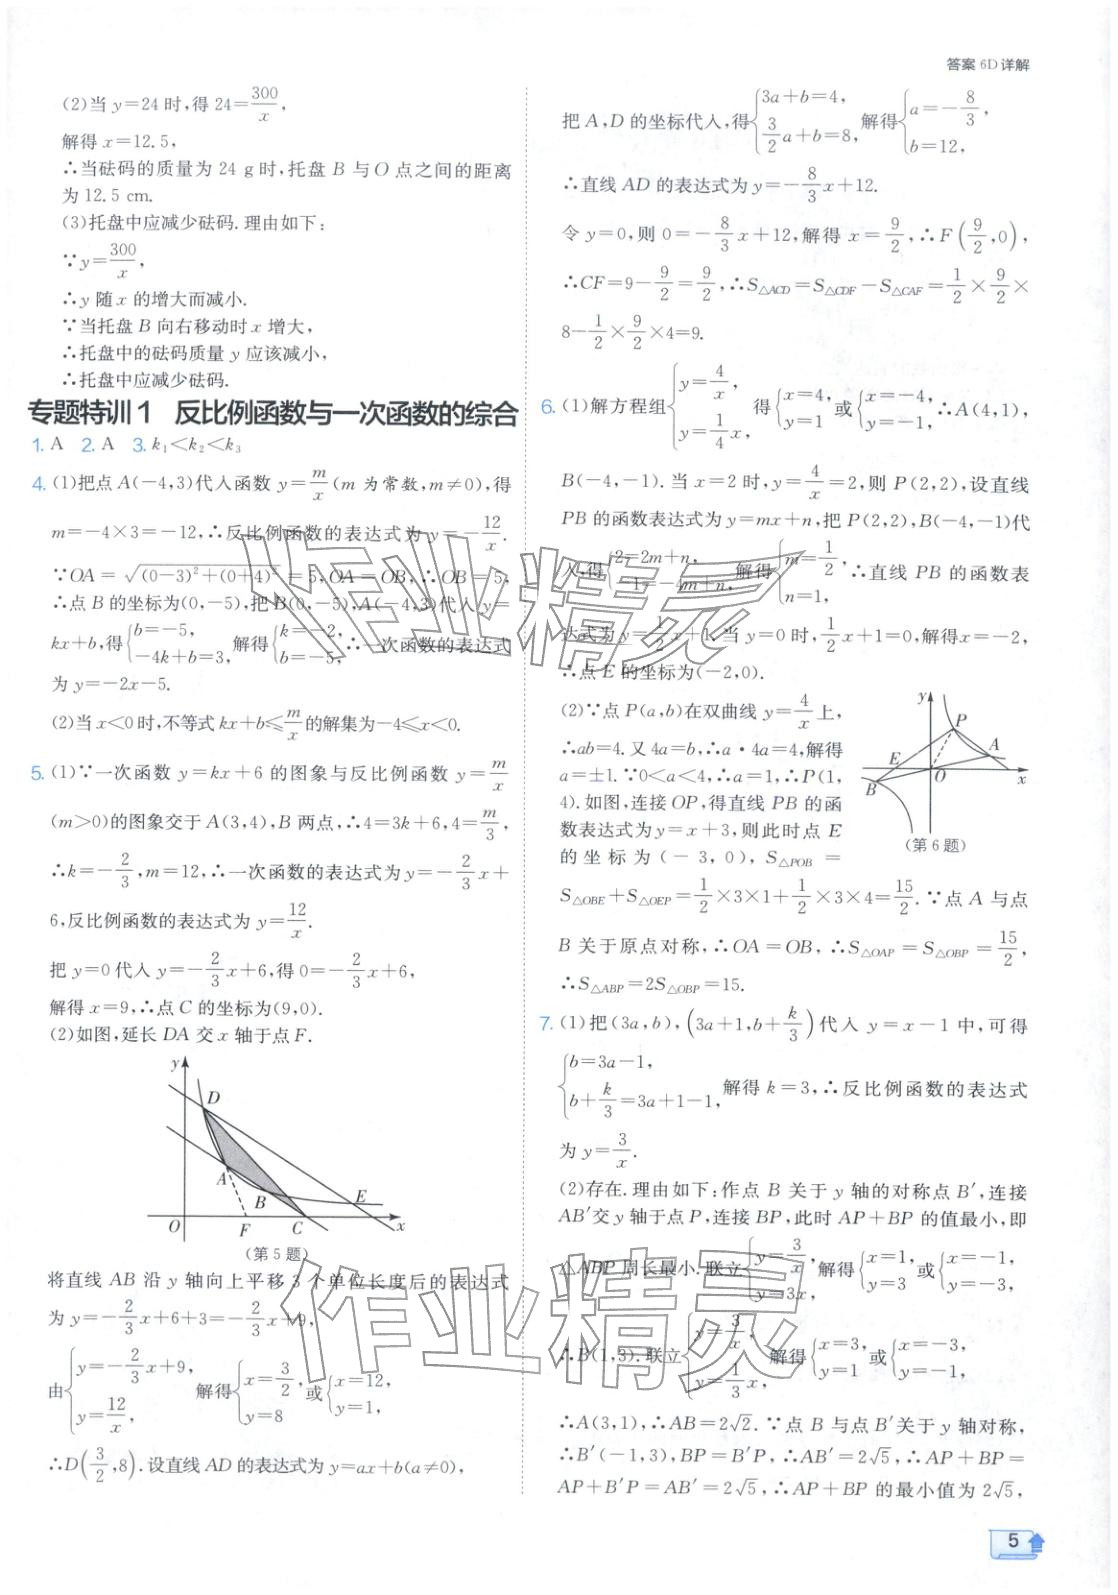 答案 6D 详解
(2)当 y=24 时,得 24=300/x,
解得 x=12.5,
∴当砝码的质量为 24 g 时,托盘 B 与 O 点之间的距离
为 12.5 cm.
(3)托盘中应减少砝码.理由如下:
∵y=300/x,
∴y 随 x 的增大而减小.
∵当托盘 B 向右移动时 x 增大,
∴托盘中的砝码质量 y 应该减小,
∴托盘中应减少砝码.
专题特训1 反比例函数与一次函数的综合
1. A 2. A 3. k₁<k₂<k₃
4. (1)把点 A(-4,3)代入函数 y=m/x (m 为常数,m≠0),得
m=-4×3=-12,∴反比例函数的表达式为 y=-12/x.
∵OA=√((0-3)²+(0+4)²)=5,OA=OB,∴OB=5,
∴点 B 的坐标为(0,-5),把B(0,-5),A(-4,3)代入 y=
kx+b,得{b=-5, -4k+b=3, 解得{k=-2, b=-5, ∴一次函数的表达式
为 y=-2x-5.
(2)当 x<0 时,不等式 kx+b≤m/x的解集为-4≤x<0.
5. (1)∵一次函数 y=kx+6 的图象与反比例函数 y=m/x
(m>0)的图象交于 A(3,4),B 两点,∴4=3k+6,4=m/3,
∴k=-2/3,m=12,∴一次函数的表达式为 y=-2/3x+
6,反比例函数的表达式为 y=12/x.
把 y=0 代入 y=-2/3x+6,得 0=-2/3x+6,
解得 x=9,∴点 C 的坐标为(9,0).
(2)如图,延长 DA 交 x 轴于点 F.
y
D
A
B
E
O
F
C
x
(第 5 题)
将直线 AB 沿 y 轴向上平移 3 个单位长度后的表达式
为 y=-2/3x+6+3=-2/3x+9,
由{y=-2/3x+9, y=12/x, 解得{x=3/2, y=8 或{x=12, y=1,
∴D(3/2,8).设直线 AD 的表达式为 y=ax+b(a≠0),
把 A,D 的坐标代入,得{3a+b=4, 3/2a+b=8, 解得{a=-8/3, b=12,
∴直线 AD 的表达式为 y=-8/3x+12.
令 y=0,则 0=-8/3x+12,解得 x=9/2,∴F(9/2,0),
∴CF=9-9/2=9/2,∴S△ACD=S△CDF-S△CAF=1/2×9/2×
8-1/2×9/2×4=9.
6. (1)解方程组{y=4/x, y=1/4x, 得{x=4, y=1 或{x=-4, y=-1, ∴A(4,1),
B(-4,-1).当 x=2 时,y=4/x=2,则 P(2,2),设直线
PB 的函数表达式为 y=mx+n,把 P(2,2),B(-4,-1)代
入,得{2=2m+n, -1=-4m+n, 解得{m=1/2, n=1, ∴直线 PB 的函数表
达式为 y=1/2x+1.当 y=0 时,1/2x+1=0,解得x=-2,
∴点 E 的坐标为(-2,0).
(2)∵点 P(a,b)在双曲线 y=4/x上,
∴ab=4.又 4a=b,∴a·4a=4,解得
a=±1.∵0<a<4,∴a=1,∴P(1,
4).如图,连接 OP,得直线 PB 的函
数表达式为y=x+3,则此时点 E
的坐标为(-3,0),S△POB=
y
P
A
E
O
x
B
(第 6 题)
S△OBE+S△OEP=1/2×3×1+1/2×3×4=15/2.∵点 A 与点
B 关于原点对称,∴OA=OB,∴S△OAP=S△OBP=15/2,
∴S△ABP=2S△OBP=15.
7. (1)把(3a,b),(3a+1,b+k/3)代入 y=x-1 中,可得
{b=3a-1, b+k/3=3a+1-1, 解得 k=3,∴反比例函数的表达式
为 y=3/x.
(2)存在.理由如下:作点 B 关于 y 轴的对称点 B′,连接
AB′交 y 轴于点 P,连接 BP,此时 AP+BP 的值最小,即
△ABP 周长最小.联立{y=3/x, y=3x, 解得{x=1, y=3 或{x=-1, y=-3,
∴B(1,3).联立{y=3/x, y=1/3x, 解得{x=3, y=1 或{x=-3, y=-1,
∴A(3,1),∴AB=2√2.∵点 B 与点 B′关于 y 轴对称,
∴B′(-1,3),BP=B′P,∴AB′=2√5,∴AP+BP=
AP+B′P=AB′=2√5,∴AP+BP 的最小值为 2√5,
5
作业精灵
作业精灵